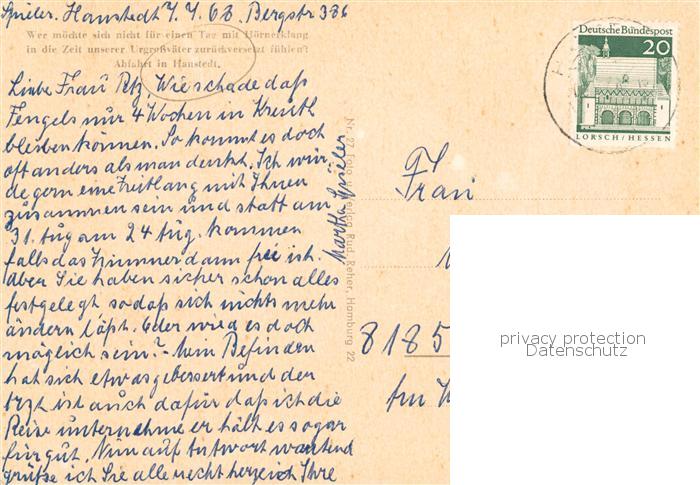 Spieler. Hanstedt 7.7.68. Bergstr 386
Wer möchte sich nicht für einen Tag mit Hörnerklang
in die Zeit unserer Urgroßväter zurückversetzt fühlen?
Abfahrt in Hanstedt.
Liebe Frau Wie schade daß
Fengels nur 4 Wochen in Kreuth
bleiben können. So kommt es doch
oft anders als man denkt. Ich wür
de gern eine Zeitlang mit Ihnen
zusammen sein und statt am
31. Aug am 24 Aug. kommen
falls das Zimmer dann frei ist.
Aber Sie haben sicher schon alles
festgelegt sodaß sich nichts mehr
ändern läßt. Oder wird es doch
möglich sein? - Mein Befinden
hat sich etwas gebessert und der
Arzt ist auch dafür daß ich die
Reise unternehme er hält es sogar
für gut. Nun auf Antwort wartend
grüße ich Sie alle recht herzlich Ihre
Martha Spieler
Nr. 27 Foto u. Verlag Rud. Reher, Hamburg 22
Deutsche Bundespost
20
LORSCH/HESSEN
Frau
8185
Am
privacy protection
Datenschutz